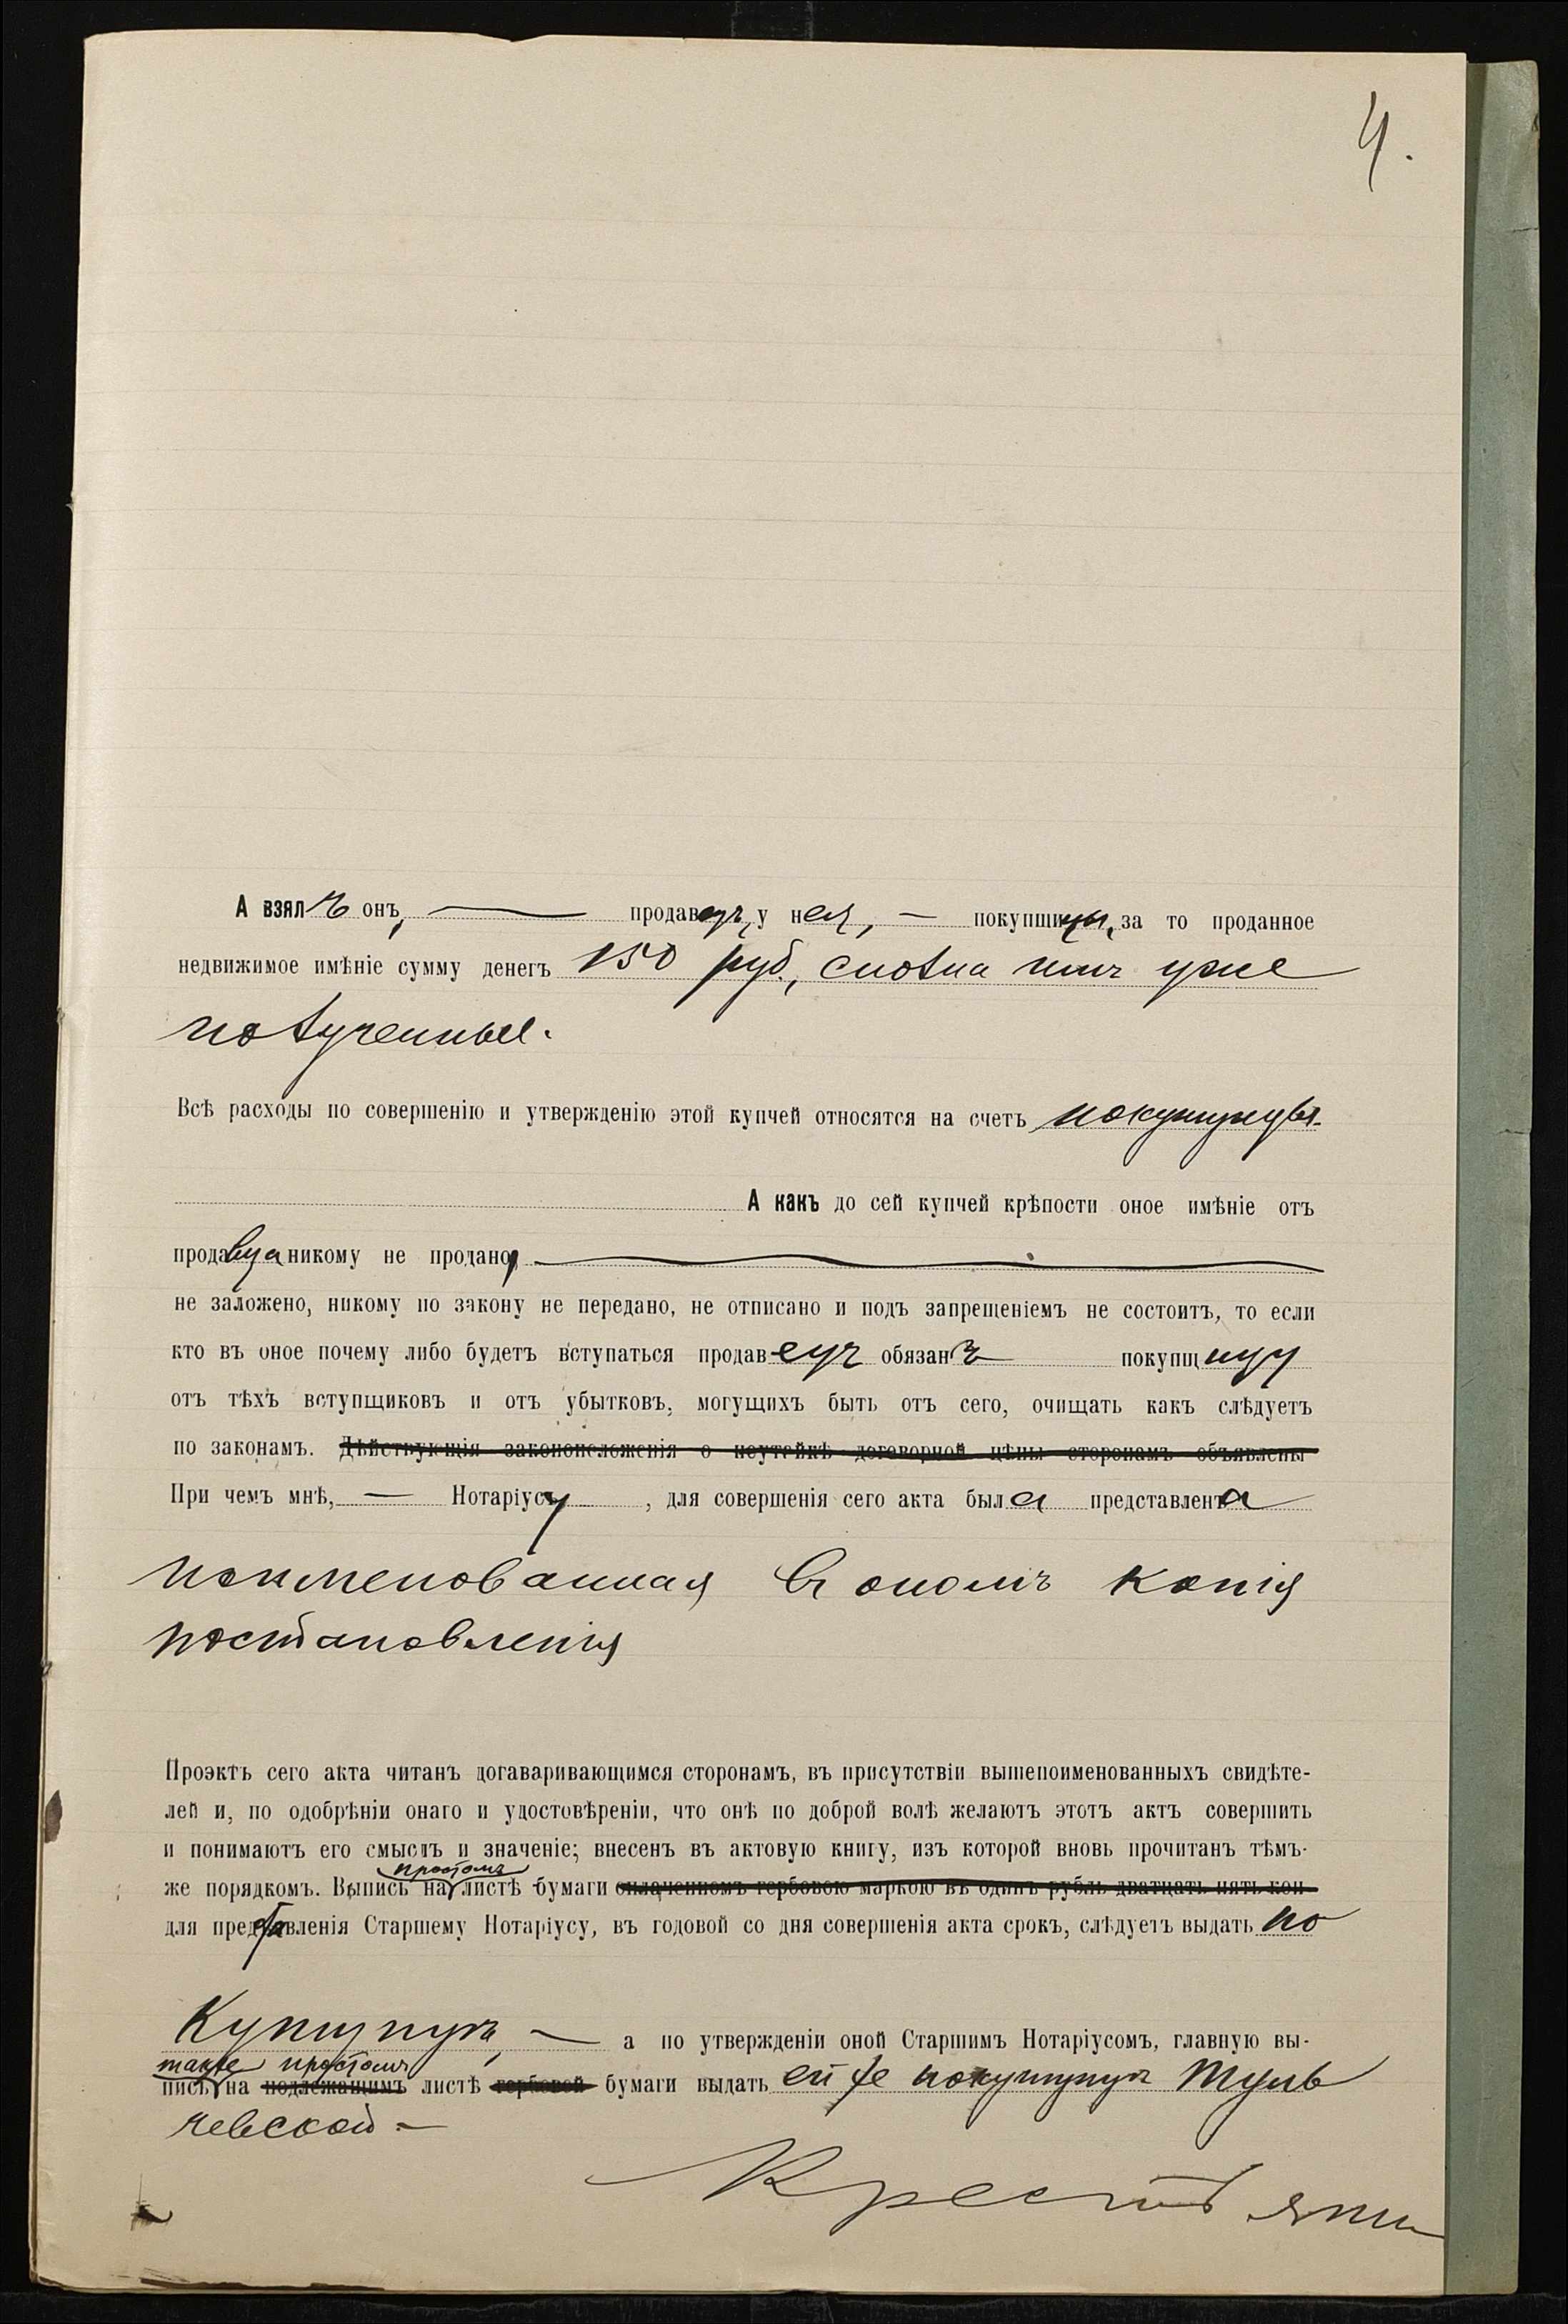 4.
А взялъ онъ, — продавецъ, у нея, — покупщицы, за то проданное
недвижимое имѣніе сумму денегъ 150 руб., сполна имъ уже
полученные.
Всѣ расходы по совершенію и утвержденію этой купчей относятся на счетъ покупщицы.
А какъ до сей купчей крѣпости оное имѣніе отъ
продавца никому не продано, —
не заложено, никому по закону не передано, не отписано и подъ запрещеніемъ не состоитъ, то если
кто въ оное почему либо будетъ вступаться продавецъ обязанъ покупщицу
отъ тѣхъ вступщиковъ и отъ убытковъ, могущихъ быть отъ сего, очищать какъ слѣдуетъ
по законамъ. Дѣйствующія законоположенія о неутайкѣ договорной цѣны сторонамъ объявлены
При чемъ мнѣ, — Нотаріусу, для совершенія сего акта была представлена
поименованная въ ономъ копія
постановленія
Проэктъ сего акта читанъ догаваривающимся сторонамъ, въ присутствіи вышепоименованныхъ свидѣте-
лей и, по одобрѣніи онаго и удостовѣреніи, что онѣ по доброй волѣ желаютъ этотъ актъ совершить
и понимаютъ его смыслъ и значеніе; внесенъ въ актовую книгу, изъ которой вновь прочитанъ тѣмъ-
простомъ
же порядкомъ. Выпись на листѣ бумаги оплаченномъ гербовою маркою въ одинъ рубль двадцать пять коп
для представленія Старшему Нотаріусу, въ годовой со дня совершенія акта срокъ, слѣдуетъ выдать по
купщицѣ, — а по утвержденіи оной Старшимъ Нотаріусомъ, главную вы-
также простомъ
пись на подлежащимъ листѣ гербовой бумаги выдать ей же покупщицѣ Туль
чевской —
Крестьянин